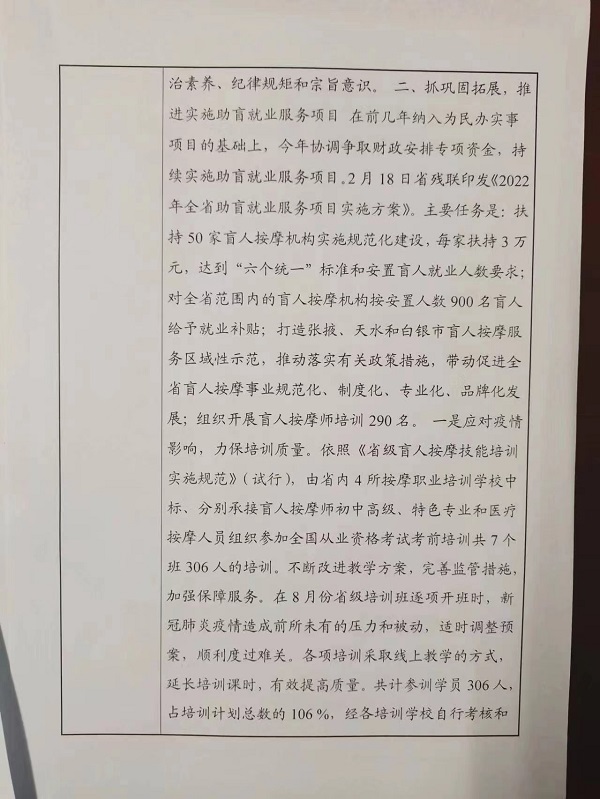 治素养、纪律规矩和宗旨意识。 二、抓巩固拓展，推
进实施助盲就业服务项目 在前几年纳入为民办实事
项目的基础上，今年协调争取财政安排专项资金，持
续实施助盲就业服务项目。2 月 18 日省残联印发《2022
年全省助盲就业服务项目实施方案》。主要任务是：扶
持 50 家盲人按摩机构实施规范化建设，每家扶持 3 万
元，达到“六个统一”标准和安置盲人就业人数要求；
对全省范围内的盲人按摩机构按安置人数 900 名盲人
给予就业补贴；打造张掖、天水和白银市盲人按摩服
务区域性示范，推动落实有关政策措施，带动促进全
省盲人按摩事业规范化、制度化、专业化、品牌化发
展；组织开展盲人按摩师培训 290 名。 一是应对疫情
影响，力保培训质量。依照《省级盲人按摩技能培训
实施规范》（试行），由省内 4 所按摩职业培训学校中
标、分别承接盲人按摩师初中高级、特色专业和医疗
按摩人员组织参加全国从业资格考试考前培训共 7 个
班 306 人的培训。不断改进教学方案，完善监管措施，
加强保障服务。在 8 月份省级培训班逐项开班时，新
冠肺炎疫情造成前所未有的压力和被动，适时调整预
案，顺利度过难关。各项培训采取线上教学的方式，
延长培训课时，有效提高质量。共计参训学员 306 人，
占培训计划总数的 106 %，经各培训学校自行考核和